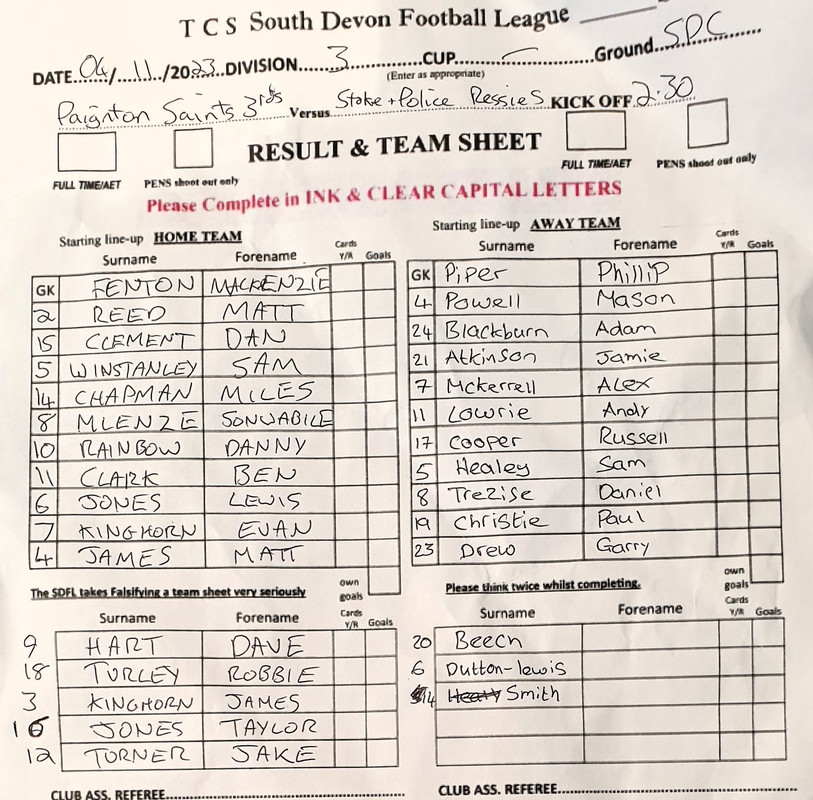 T C S South Devon Football League
DATE 04/11/2023 DIVISION 3 CUP – Ground SDC
(Enter as appropriate)
Paignton Saints 3rds Versus Stoke + Police Ressies KICK OFF 2.30
RESULT & TEAM SHEET
FULL TIME/AET PENS shoot out only FULL TIME/AET PENS shoot out only
Please Complete in INK & CLEAR CAPITAL LETTERS
Starting line-up HOME TEAM
Surname Forename Cards Y/R Goals
GK FENTON MACKENZIE
2 REED MATT
15 CLEMENT DAN
5 WINSTANLEY SAM
14 CHAPMAN MILES
8 MLENZE SONWABILE
10 RAINBOW DANNY
11 CLARK BEN
6 JONES LEWIS
7 KINGHORN EVAN
4 JAMES MATT
own goals
The SDFL takes Falsifying a team sheet very seriously
Surname Forename Cards Y/R Goals
9 HART DAVE
18 TURLEY ROBBIE
3 KINGHORN JAMES
16 JONES TAYLOR
12 TURNER JAKE
CLUB ASS. REFEREE
Starting line-up AWAY TEAM
Surname Forename Cards Y/R Goals
GK Piper Phillip
4 Powell Mason
24 Blackburn Adam
21 Atkinson Jamie
7 Mckerrell Alex
11 Lowrie Andy
17 Cooper Russell
5 Healey Sam
8 Trezise Daniel
19 Christie Paul
23 Drew Garry
own goals
Please think twice whilst completing.
Surname Forename Cards Y/R Goals
20 Beech
6 Dutton-lewis
14 Smith
CLUB ASS. REFEREE